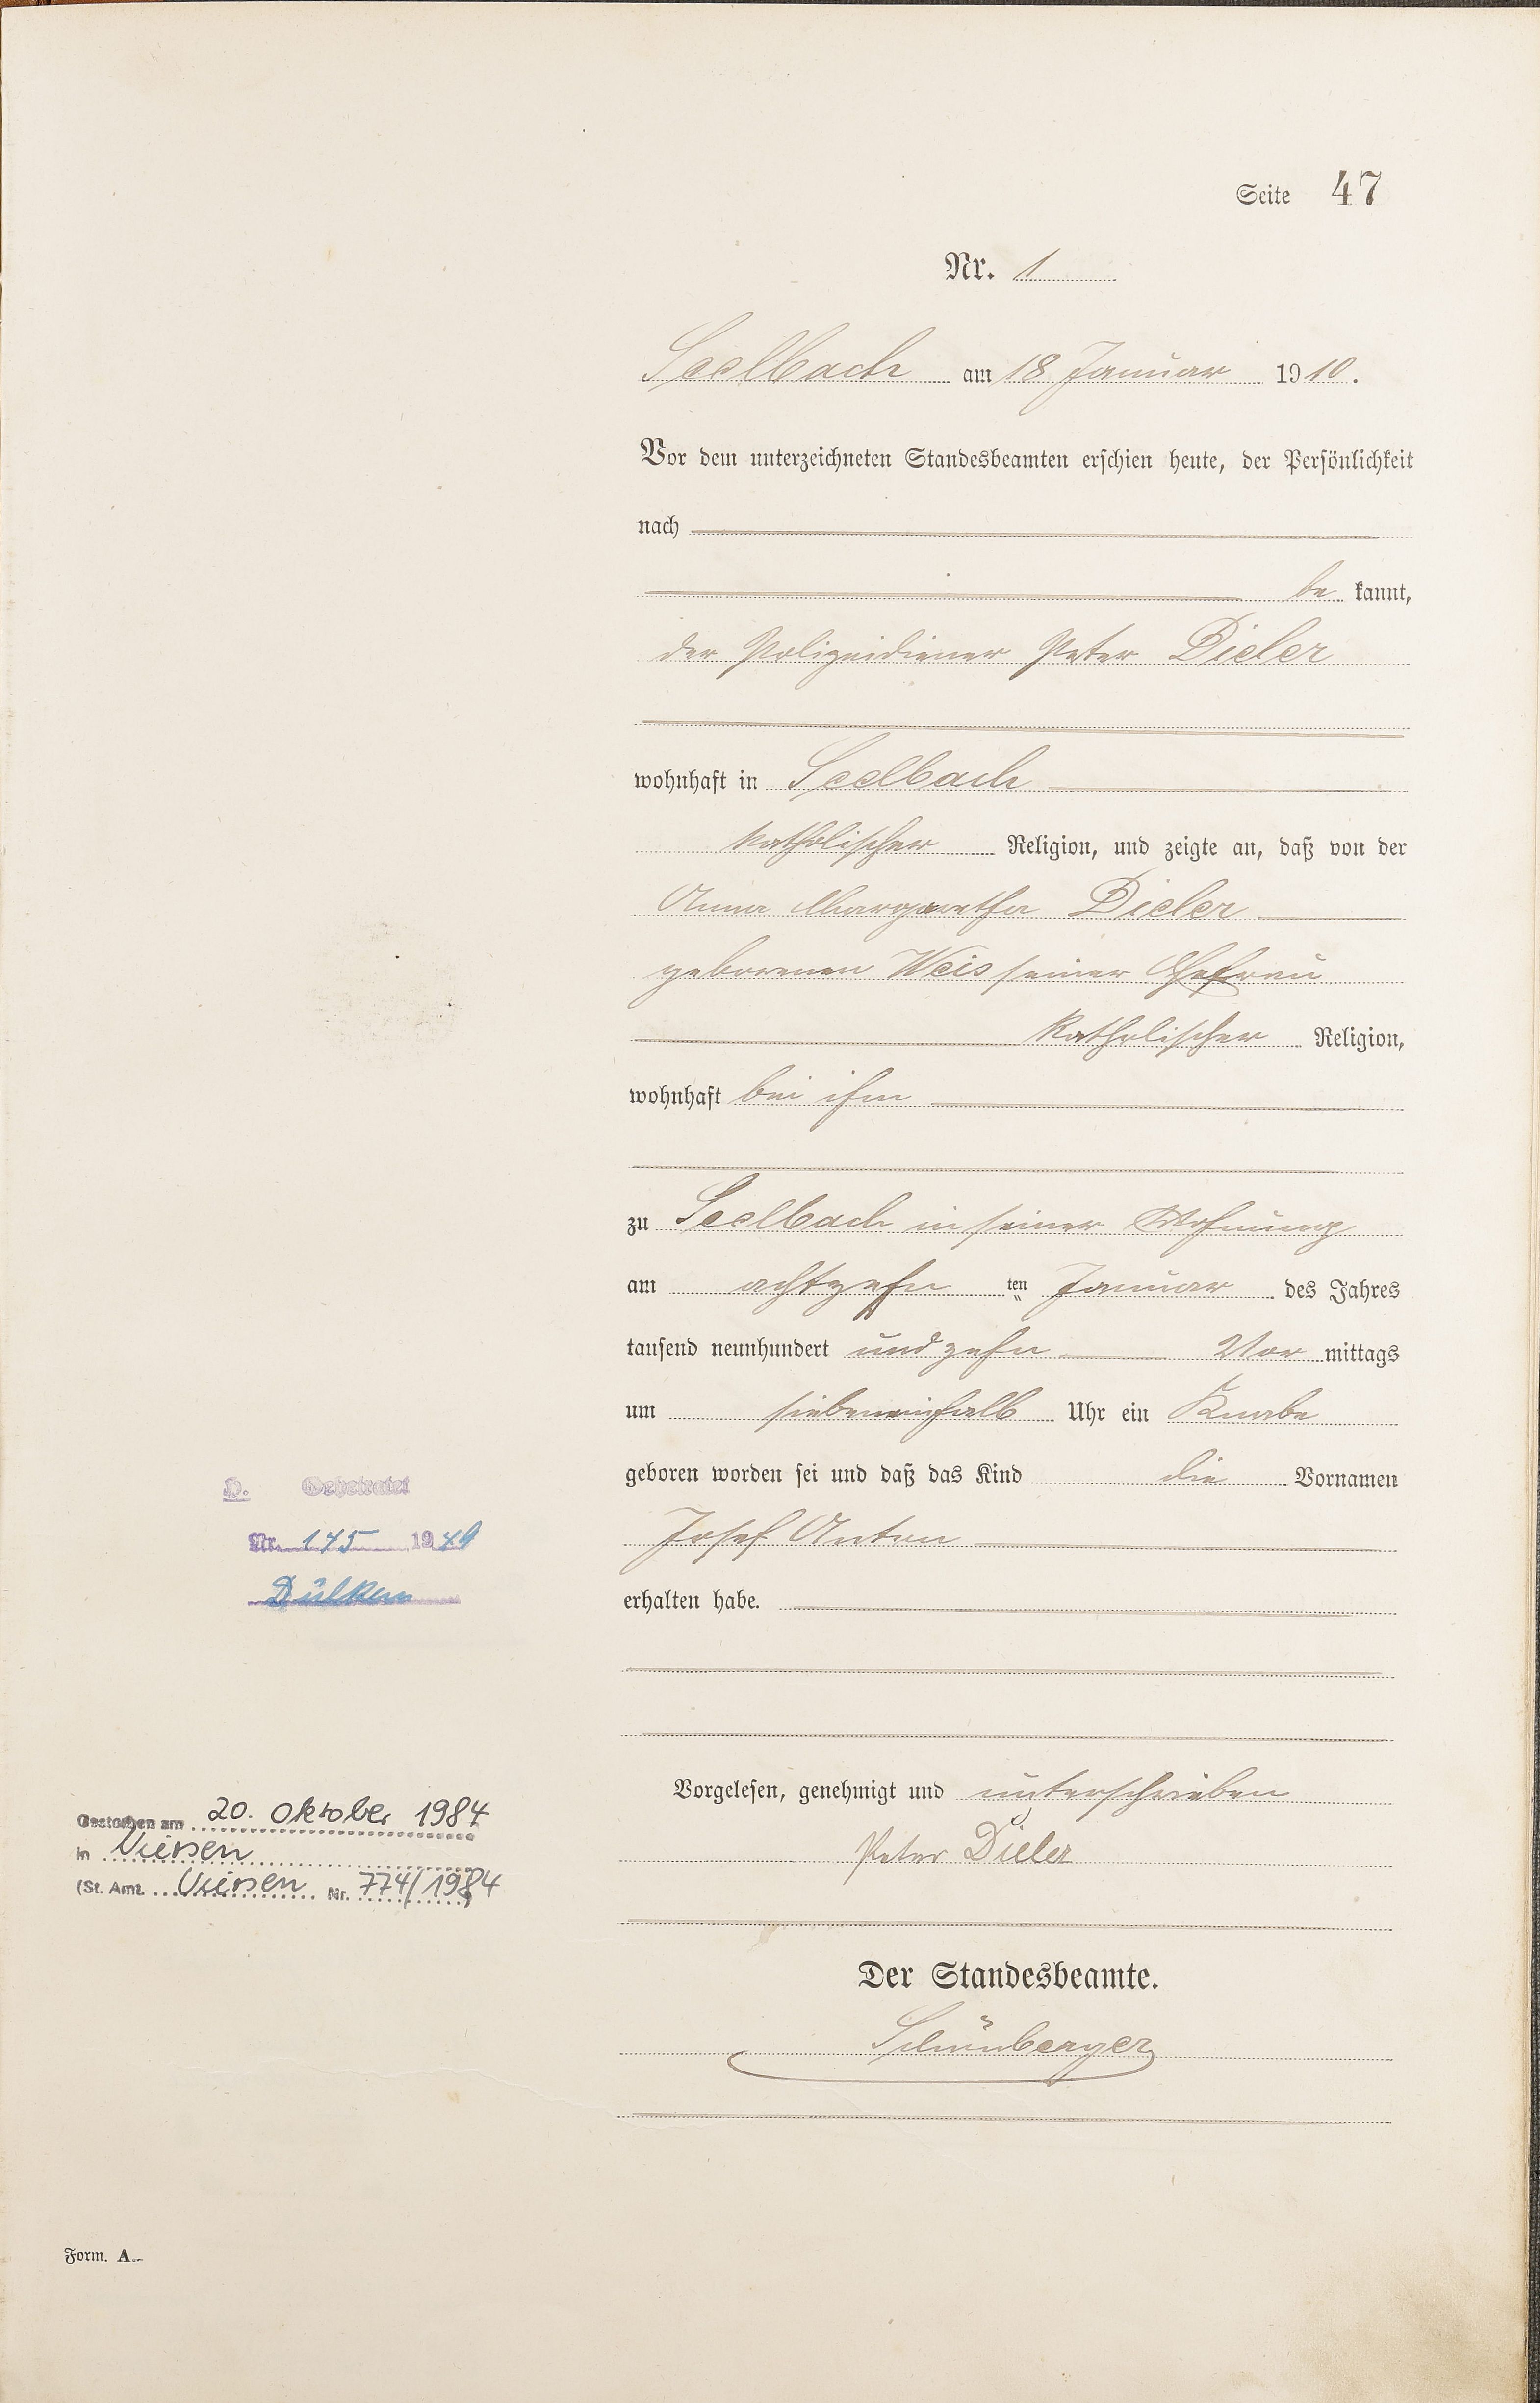 Seite 47
Nr. 1
Seelbach am 18 Januar 1910.
Vor dem unterzeichneten Standesbeamten erschien heute, der Persönlichkeit
nach
be kannt,
der Polizeidiener Peter Dieler
wohnhaft in Seelbach
katholischer Religion, und zeigte an, daß von der
Anna Margaretha Dieler
geborenen Weis seiner Ehefrau
katholischer Religion,
wohnhaft bei ihm
zu Seelbach in seiner Wohnung
am achtzehn ten Januar des Jahres
tausend neunhundert und zehn Vor mittags
um siebeneinhalb Uhr ein Knabe
geboren worden sei und daß das Kind die Vornamen
Josef Anton
erhalten habe.
Vorgelesen, genehmigt und unterschrieben
Peter Dieler
Der Standesbeamte.
Schönberger
H. Geheiratet
Nr. 145 1949
Dülken
Gestorben am 20. Oktober 1984
in Viersen
(St. Amt. Viersen Nr. 774/1984
Form. A.